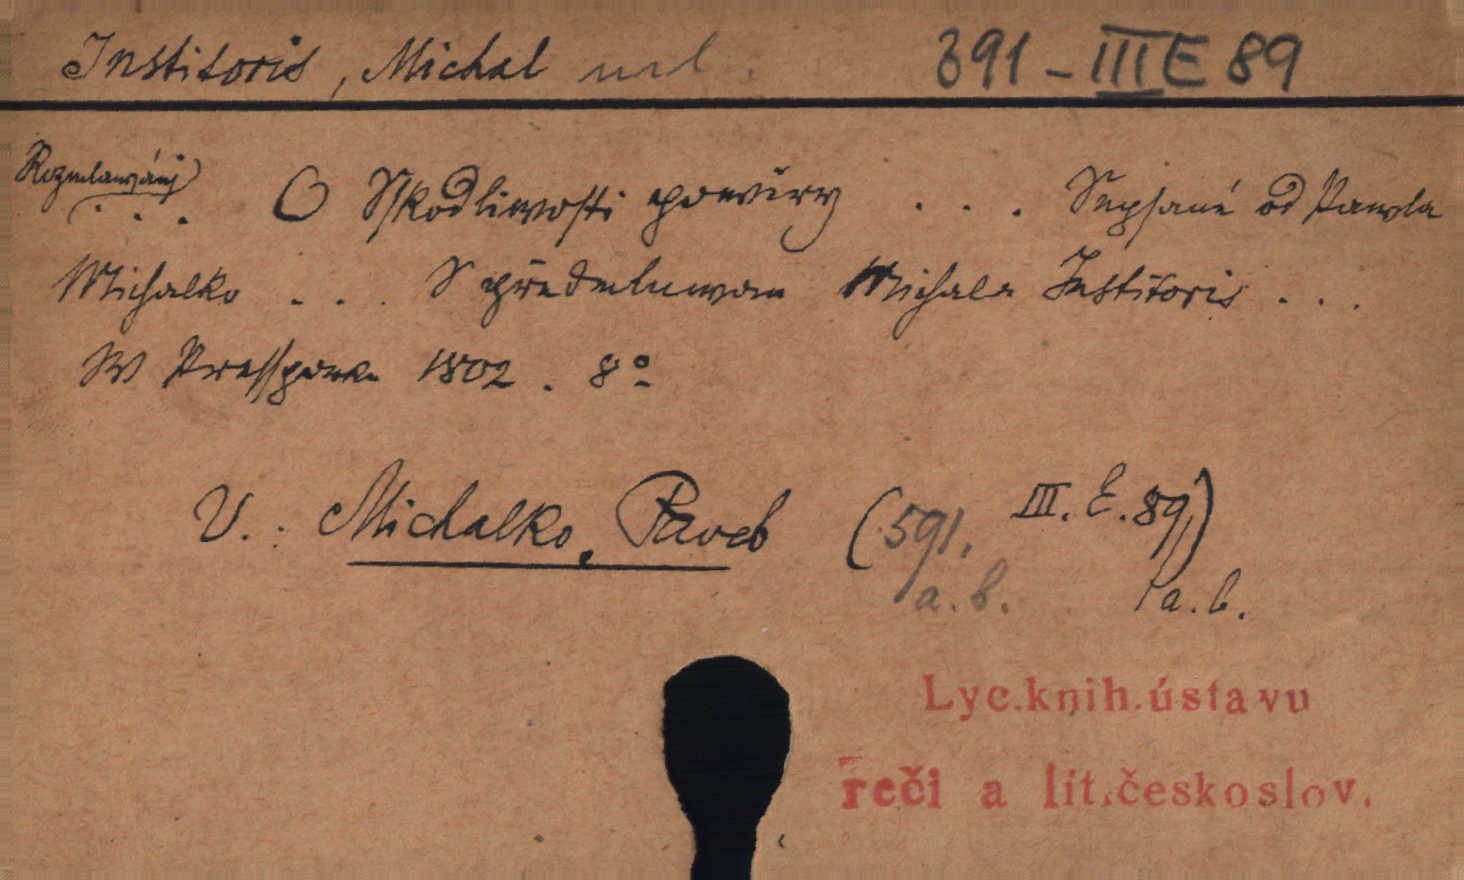 Institoris, Michal 391 - III E 89
Rozmlauwánj
. . . O Sskodliwosti powěry . . . Sepsané od Pawla
Michalko . . . S předmluwau Michala Institoris . . .
W Presspurku 1802. 8º
V.: Michalko, Pavel (591. III. E. 89)
a. b. a. b.
Lyc. knih. ústavu
řeči a lit. českoslov.